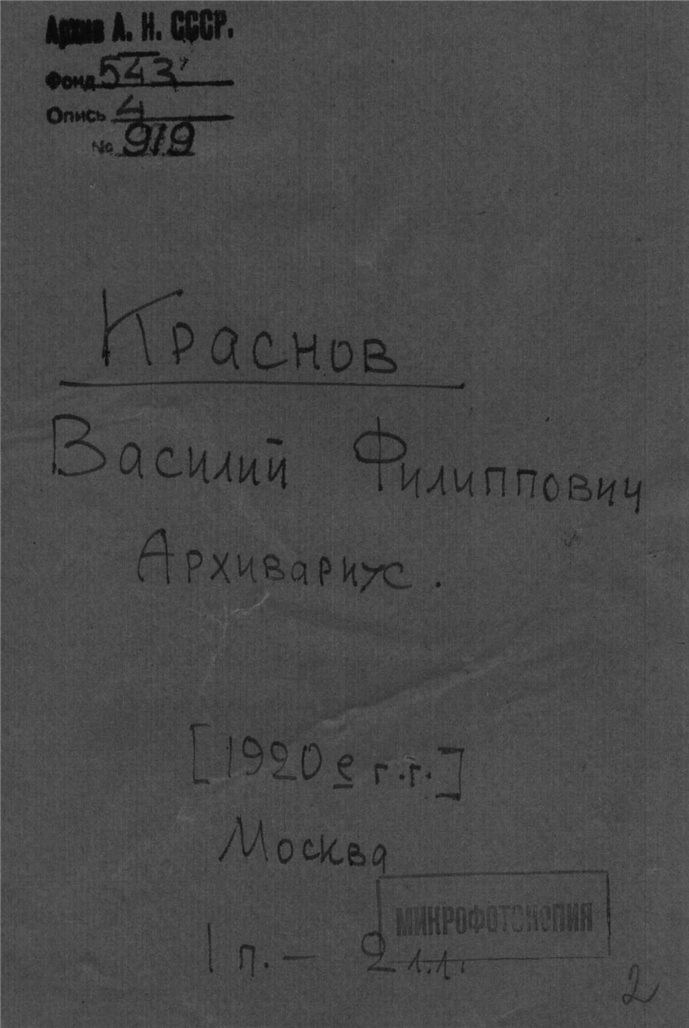 Архив А. Н. СССР.
Фонд 543
Опись 4
№ 919
Краснов
Василий Филиппович
Архивариус.
[1920 е г.г.]
Москва
МИКРОФОТОКОПИЯ
1 п. — 2 л.л.
2